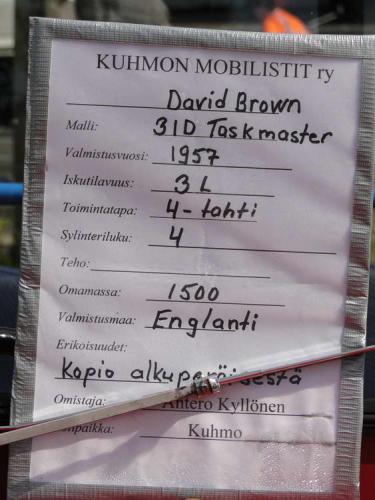 KUHMON MOBILISTIT ry
David Brown
Malli: 31D Taskmaster
Valmistusvuosi: 1957
Iskutilavuus: 3 L
Toimintatapa: 4-tahti
Sylinteriluku: 4
Teho:
Omamassa: 1500
Valmistusmaa: Englanti
Erikoisuudet:
kopio alkuperäisestä
Omistaja: Antero Kyllönen
Kuhmo